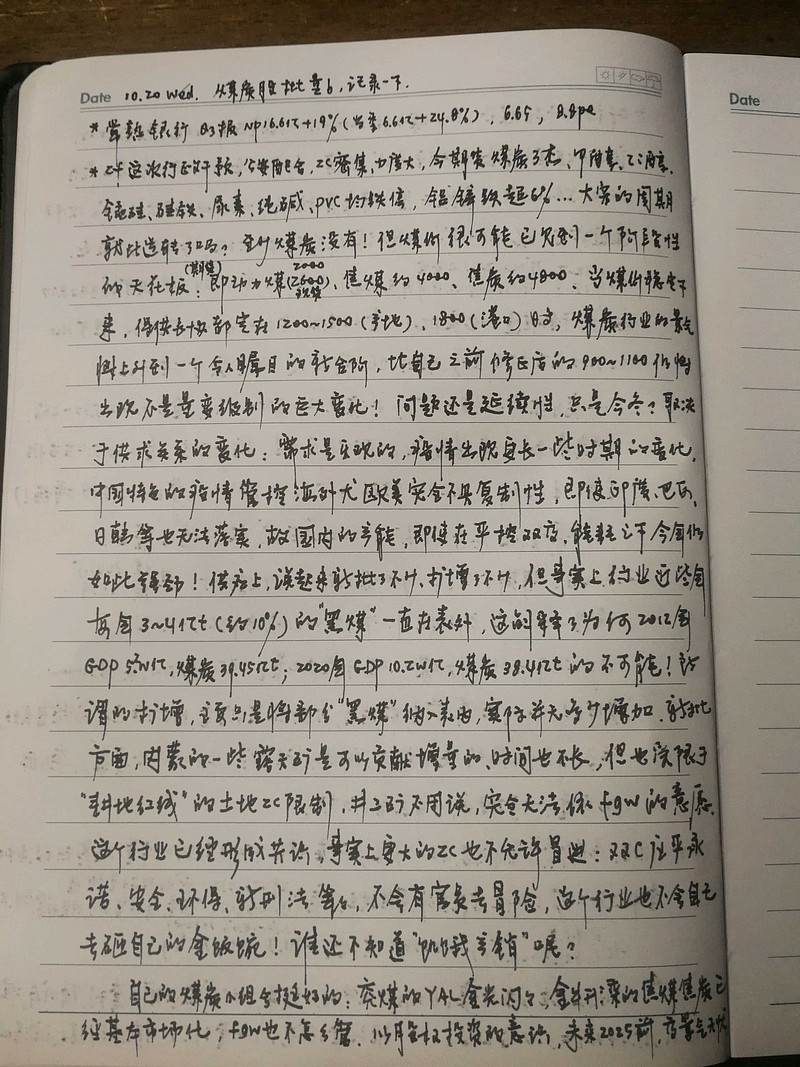 Date 10.20 Wed. 煤炭股批量b,记录一下.
Date
* 常熟银行 Q3报 NP16.61亿+19%(当季6.61亿+24.8%), 6.65, 8.8pe
* 这次行政干预, 发改配合, ZC密集、力度大, 今期货煤炭3杰、甲醇、乙二醇、
锰硅、硅铁、尿素、纯碱、PVC均跌停, 铝锌跌超6%… 大宗的周期
就此逆转了吗? 至少煤炭没有! 但煤价很可能已见到一个阶段性
的天花板(期货): 即动力煤2000(2600现货)、焦煤约4000、焦炭约4800. 当煤价稳定下
来, 保供长协都定在1200~1500(产地)、1800(港口)时, 煤炭行业的景气
将上升到一个令人瞩目的新台阶, 比自己之前修正后的900~1100仍将
出现不是量变级别的巨大变化! 问题还是延续性, 只是今冬? 取决
于供求关系的变化: 需求是乐观的, 疫情出现更长一些时期的变化,
中国特色的疫情管控海外尤欧美完全不具复制性, 即使印, 巴西、
日韩等也无法落实, 故国内的产能, 即使在平控双高、能耗之下今年仍
如此强劲! 供应上, 说起来新批了不少, 扩增了不少, 但事实上行业近些年
每年3~4亿t(约10%)的“黑煤”一直在表外, 这解释了为何2012年
GDP 5W亿, 煤炭39.45亿t; 2020年GDP 10.2W亿, 煤炭38.4亿t的不可能! 所
谓的扩增, 主要只是将部分“黑煤”纳入表内, 实际并无多少增加. 新批
方面, 内蒙的一些露天矿是可以贡献增量的、时间也不长, 但也受限于
“耕地红线”的土地ZC限制, 井工矿不用说, 完全无法依fgw的意愿.
这个行业已经形成共识, 事实上更大的ZC也不允许冒进: 双C庄严承
诺、安全、环保、新刑法等, 不会有官员去冒险, 这个行业也不会自己
去砸自己的金饭碗! 谁还不知道“饥饿产销”呢?
自己的煤炭小组合挺好的: 兖煤的YAL金光闪闪; 的焦煤焦炭已
经基本市场化, fgw也不怎么管. 以股权投资的意识, 未来2025前, 高景气无忧